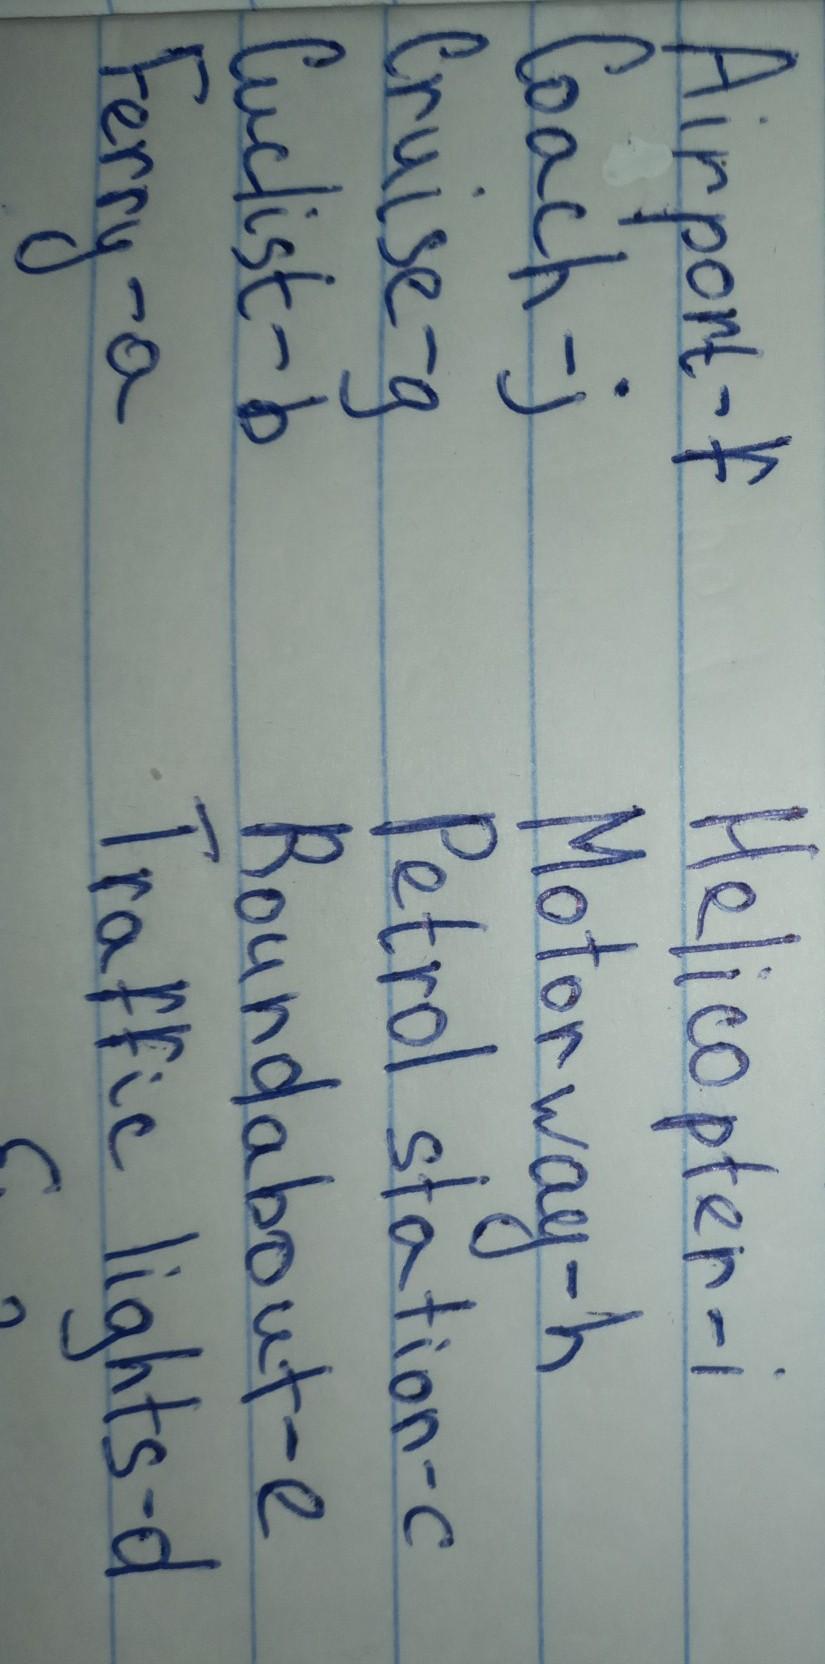 Airport-f Helicopter-i
Coach-j Motorway-h
Cruise-g Petrol station-c
Cuclist-b Roundabout-e
Ferry-a Traffic lights-d